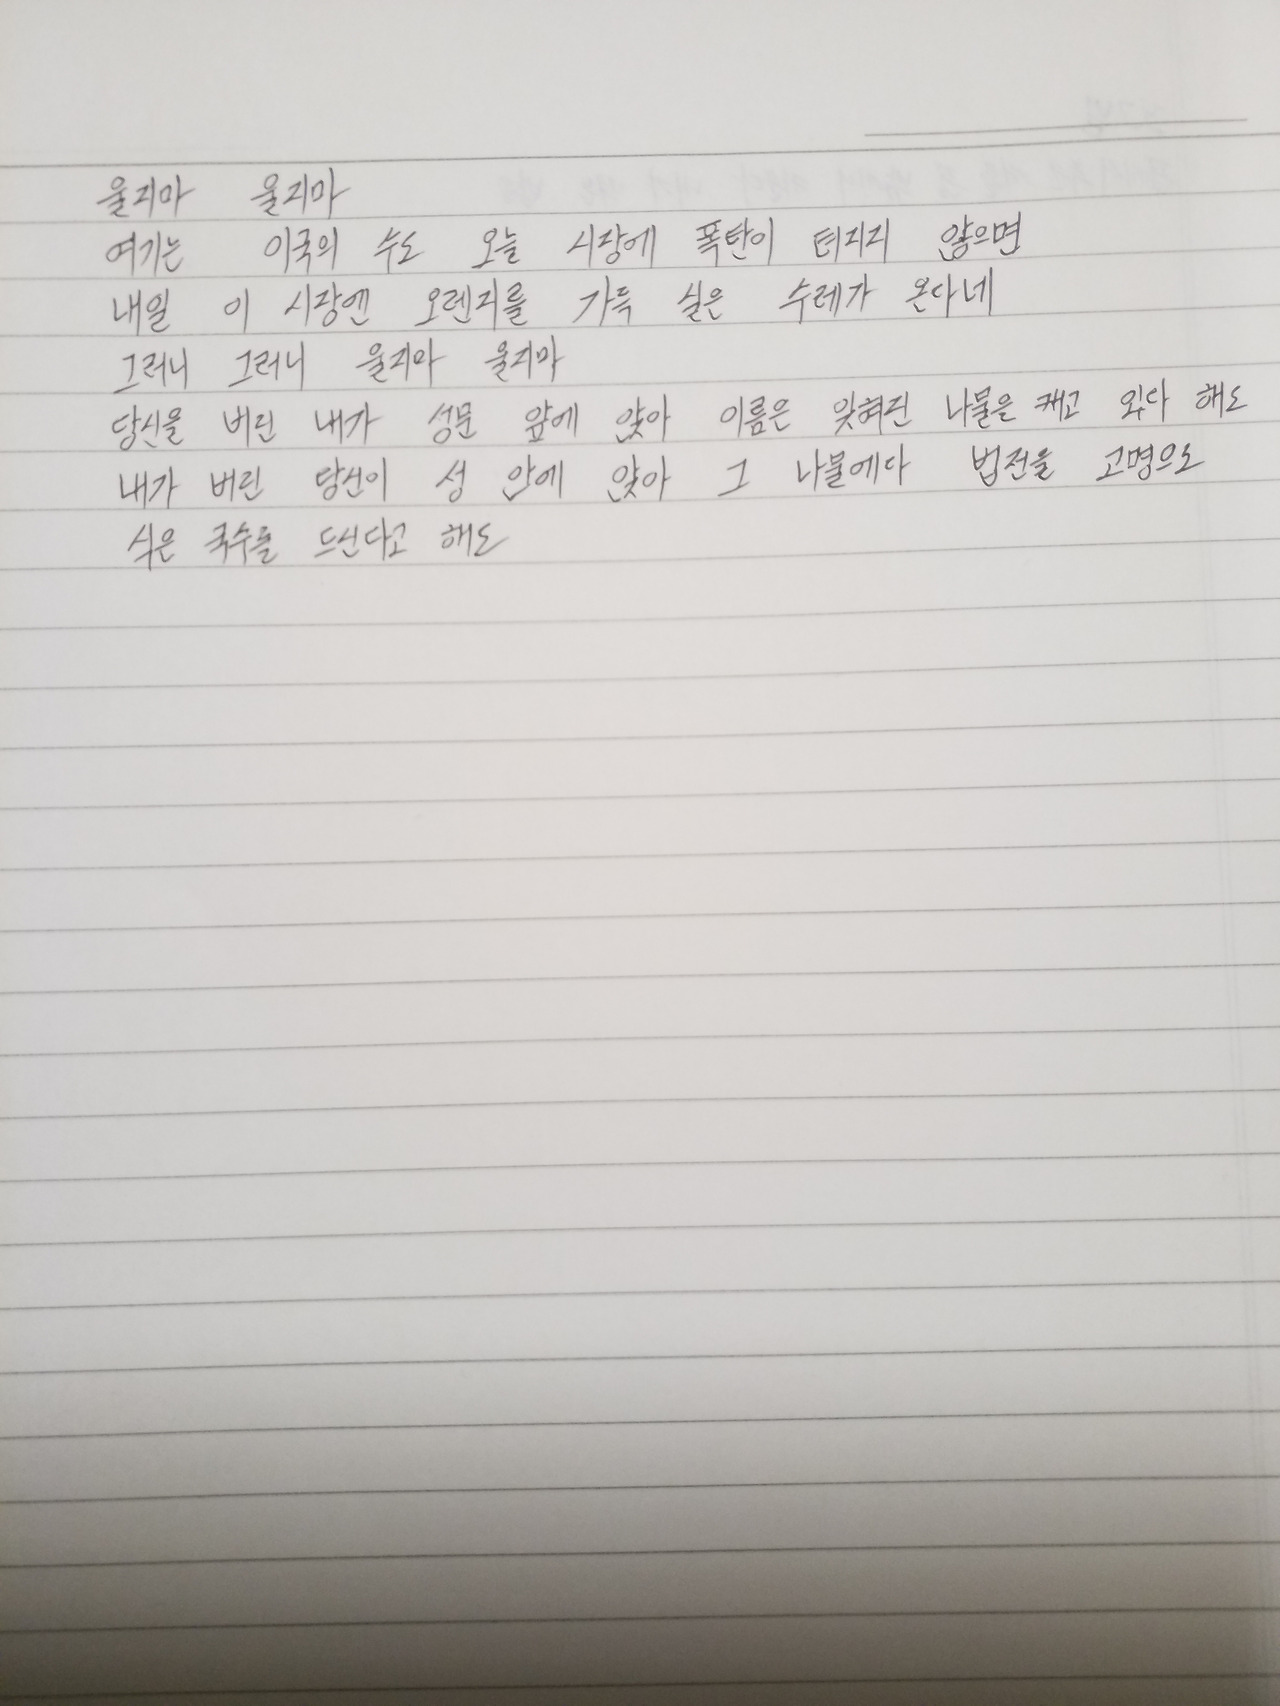 울지마 울지마
여기는 이국의 수도 오늘 시장에 폭탄이 터지지 않으면
내일 이 시장엔 오렌지를 가득 실은 수레가 온다네
그러니 그러니 울지마 울지마
당신을 버린 내가 성문 앞에 앉아 이름은 잊혀진 나물은 캐고 있다 해도
내가 버린 당신이 성 안에 앉아 그 나물에다 법전을 고명으로
식은 국수를 드신다고 해도